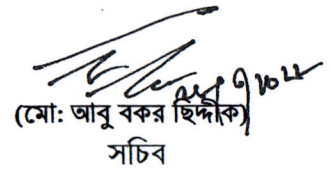 (মো: আবু বকর ছিদ্দীক)
সচিব